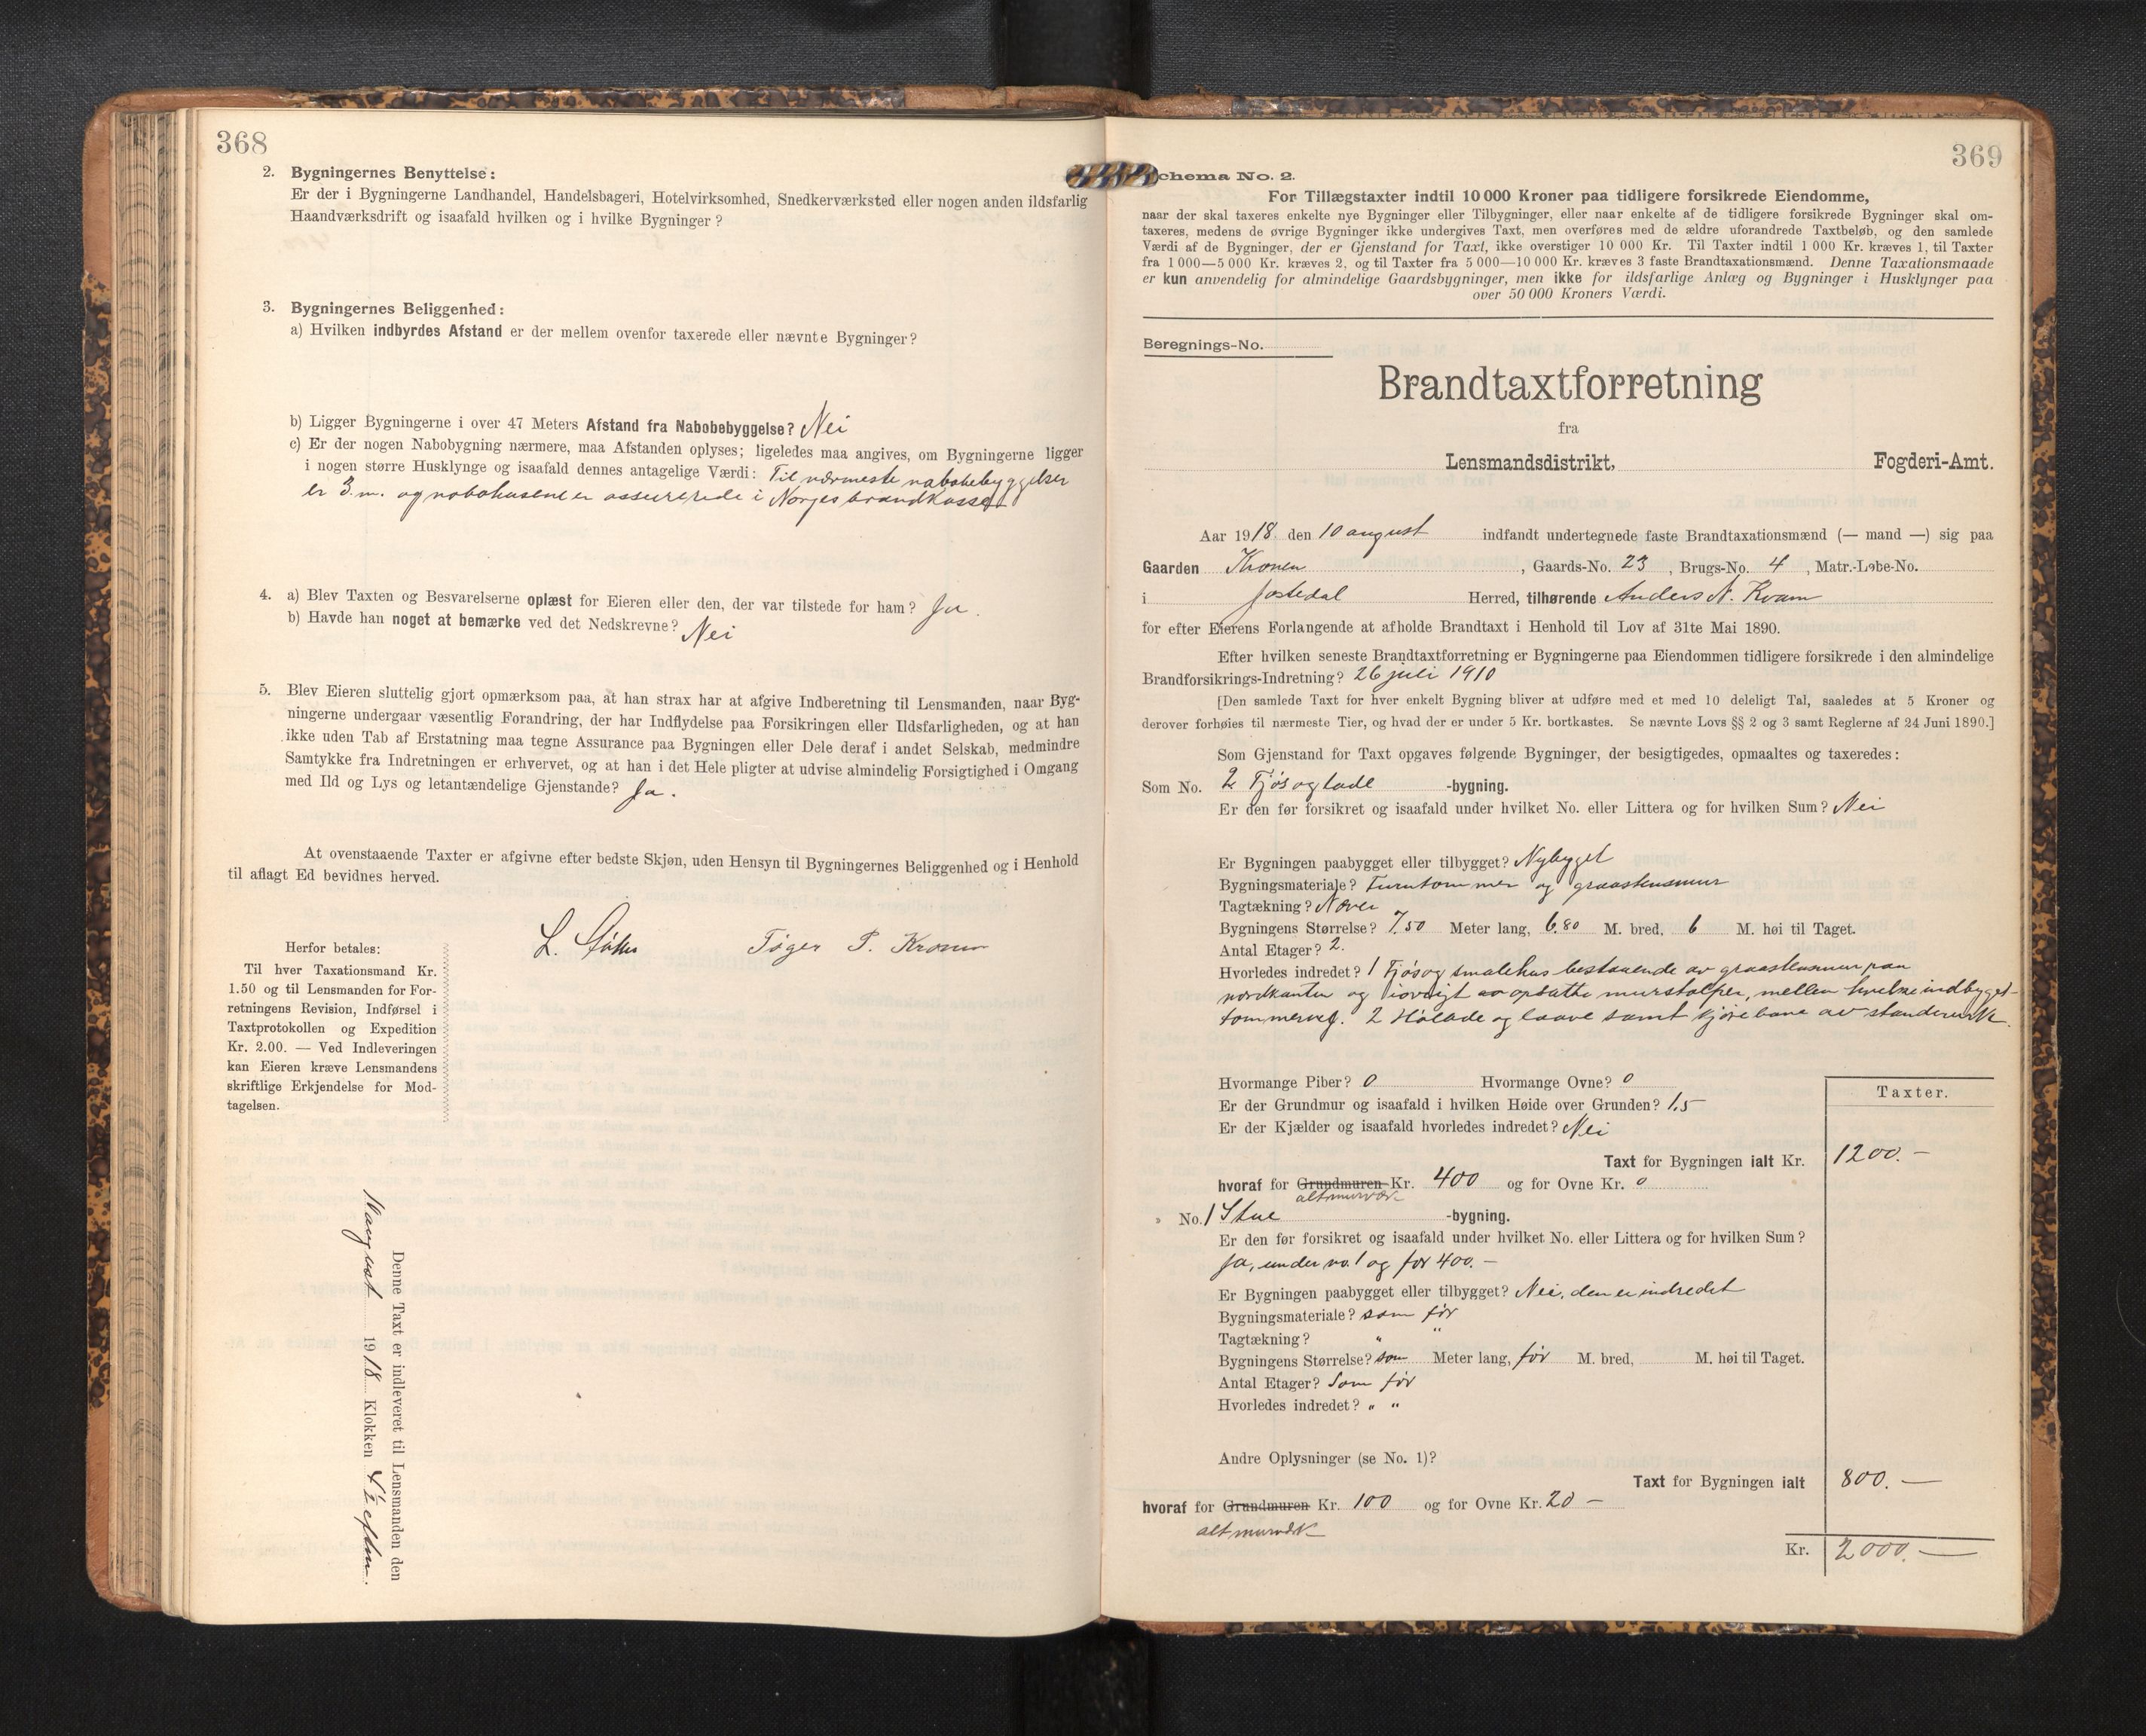 368
2. Bygningernes Benyttelse:
Er der i Bygningerne Landhandel, Handelsbageri, Hotelvirksomhed, Snedkerværksted eller nogen anden ildsfarlig
Haandværksdrift og isaafald hvilken og i hvilke Bygninger?
3. Bygningernes Beliggenhed:
a) Hvilken indbyrdes Afstand er der mellem ovenfor taxerede eller nævnte Bygninger?
b) Ligger Bygningerne i over 47 Meters Afstand fra Nabobebyggelse? Nei
c) Er der nogen Nabobygning nærmere, maa Afstanden oplyses; ligeledes maa angives, om Bygningerne ligger
i nogen større Husklynge og isaafald dennes antagelige Værdi: Til nærmeste nabobebyggelser
er 3. m. og nabohusene er assurerede i Norges brandkasse
4. a) Blev Taxten og Besvarelserne oplæst for Eieren eller den, der var tilstede for ham? Ja.
b) Havde han noget at bemærke ved det Nedskrevne? Nei
5. Blev Eieren sluttelig gjort opmærksom paa, at han strax har at afgive Indberetning til Lensmanden, naar Byg-
ningerne undergaar væsentlig Forandring, der har Indflydelse paa Forsikringen eller Ildsfarligheden, og at han
ikke uden Tab af Erstatning maa tegne Assurance paa Bygningen eller Dele deraf i andet Selskab, medmindre
Samtykke fra Indretningen er erhvervet, og at han i det Hele pligter at udvise almindelig Forsigtighed i Omgang
med Ild og Lys og letantændelige Gjenstande? Ja.
At ovenstaaende Taxter er afgivne efter bedste Skjøn, uden Hensyn til Bygningernes Beliggenhed og i Henhold
til aflagt Ed bevidnes herved.
L. Tøger P. Kronen
Herfor betales:
Til hver Taxationsmand Kr.
1.50 og til Lensmanden for For-
retningens Revision, Indførsel i
Taxtprotokollen og Expedition
Kr. 2.00. — Ved Indleveringen
kan Eieren kræve Lensmandens
skriftlige Erkjendelse for Mod-
tagelsen.
Denne Taxt er indleveret til Lensmanden den
11 august 1918 Klokken 4½ eftm.
369
Schema No. 2.
For Tillægstaxter indtil 10 000 Kroner paa tidligere forsikrede Eiendomme,
naar der skal taxeres enkelte nye Bygninger eller Tilbygninger, eller naar enkelte af de tidligere forsikrede Bygninger skal om-
taxeres, medens de øvrige Bygninger ikke undergives Taxt, men overføres med de ældre uforandrede Taxtbeløb, og den samlede
Værdi af de Bygninger, der er Gjenstand for Taxt, ikke overstiger 10 000 Kr. Til Taxter indtil 1 000 Kr. kræves 1, til Taxter
fra 1 000—5 000 Kr. kræves 2, og til Taxter fra 5 000—10 000 Kr. kræves 3 faste Brandtaxationsmænd. Denne Taxationsmaade
er kun anvendelig for almindelige Gaardsbygninger, men ikke for ildsfarlige Anlæg og Bygninger i Husklynger paa
over 50 000 Kroners Værdi.
Beregnings-No.
Brandtaxtforretning
fra
Lensmandsdistrikt, Fogderi-Amt.
Aar 1918 den 10 august indfandt undertegnede faste Brandtaxationsmænd (— mand —) sig paa
Gaarden Kronen, Gaards-No. 23, Brugs-No. 4, Matr.-Løbe-No.
i Jostedal Herred, tilhørende Anders N. Kvam
for efter Eierens Forlangende at afholde Brandtaxt i Henhold til Lov af 31te Mai 1890.
Efter hvilken seneste Brandtaxtforretning er Bygningerne paa Eiendommen tidligere forsikrede i den almindelige
Brandforsikrings-Indretning? 26 juli 1910
[Den samlede Taxt for hver enkelt Bygning bliver at udføre med et med 10 deleligt Tal, saaledes at 5 Kroner og
derover forhøies til nærmeste Tier, og hvad der er under 5 Kr. bortkastes. Se nævnte Lovs §§ 2 og 3 samt Reglerne af 24 Juni 1890.]
Som Gjenstand for Taxt opgaves følgende Bygninger, der besigtigedes, opmaaltes og taxeredes:
Som No. 2 Fjøs og lade -bygning.
Er den før forsikret og isaafald under hvilket No. eller Littera og for hvilken Sum? Nei
Er Bygningen paabygget eller tilbygget? Nybygget
Bygningsmateriale? Furutømmer og graastensmur
Tagtækning? Næver
Bygningens Størrelse? 7.50 Meter lang, 6.80 M. bred, 6 M. høi til Taget.
Antal Etager? 2.
Hvorledes indredet? 1 Fjøs og smalehus bestaaende av graastensmur paa
nordkanten og iøvrigt av opsatte murstolper, mellem hvilke indbygget
tømmerveg. 2 Hølade og laave samt kjørebane av stenderverk.
Hvormange Piber? 0 Hvormange Ovne? 0
Er der Grundmur og isaafald i hvilken Høide over Grunden? 1.5
Er der Kjælder og isaafald hvorledes indredet? Nei
Taxter.
Taxt for Bygningen ialt Kr. 1200.—
hvoraf for Grundmuren Kr. 400 og for Ovne Kr. 0
alt murverk
" No. 1 Stue -bygning.
Er den før forsikret og isaafald under hvilket No. eller Littera og for hvilken Sum?
Ja, under no. 1 og for 400.—
Er Bygningen paabygget eller tilbygget? Nei, den er indredet
Bygningsmateriale? som før
Tagtækning? " "
Bygningens Størrelse? som Meter lang, før M. bred, M. høi til Taget.
Antal Etager? Som før
Hvorledes indredet? " "
Andre Oplysninger (se No. 1)?
Taxt for Bygningen ialt 800.—
hvoraf for Grundmuren Kr. 100 og for Ovne Kr. 20 —
alt murverk
Kr. 2000.—